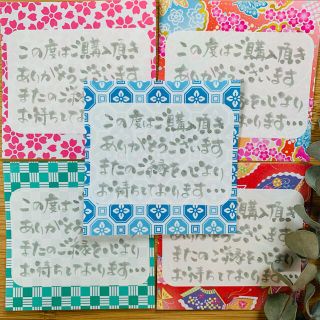 この度はご購入頂き
ありがとうございます
またのご縁を心より
お待ちしております…
この度はご購入頂き
ありがとうございます
またのご縁を心より
お待ちしております…
この度はご購入頂き
ありがとうございます
またのご縁を心より
お待ちしております…
この度はご購入頂き
ありがとうございます
またのご縁を心より
お待ちしております…
この度はご購入頂き
ありがとうございます
またのご縁を心より
お待ちしております…